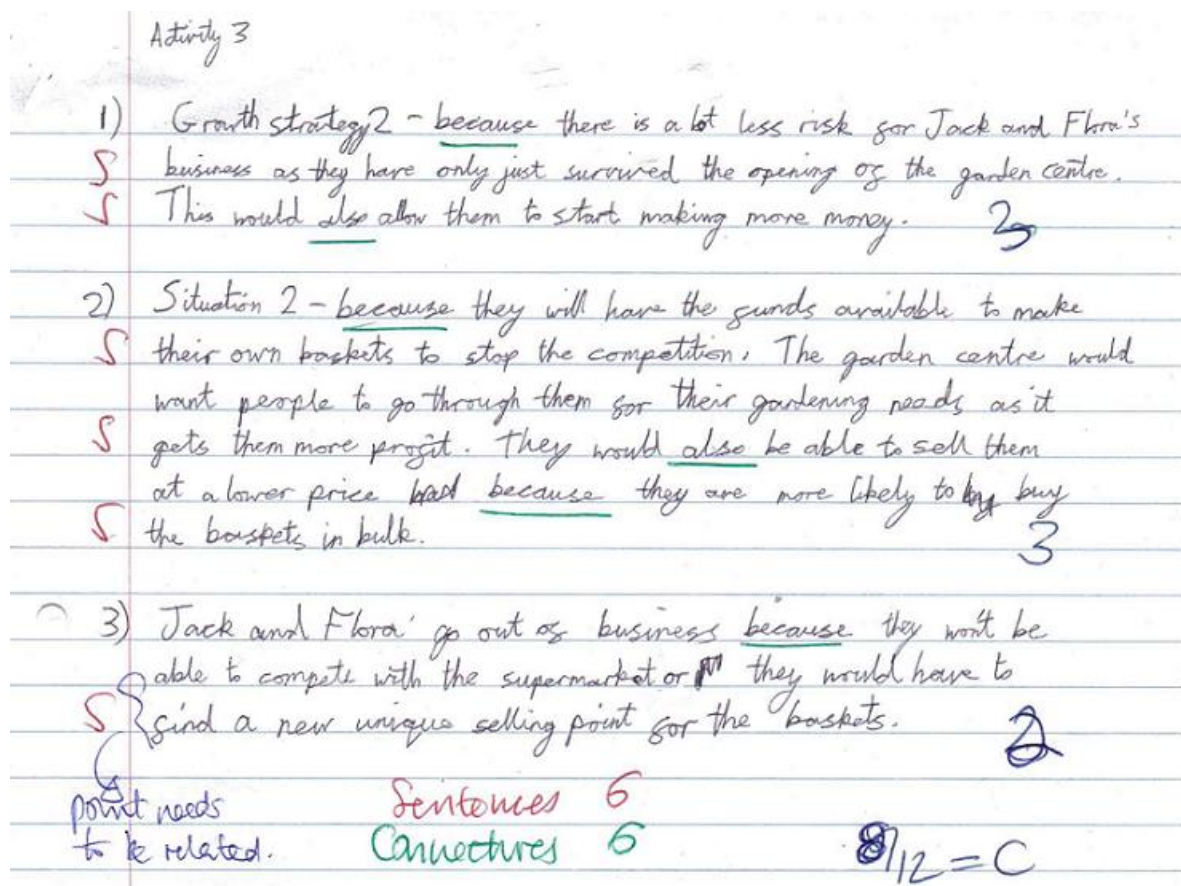 Activity 3
1) Growth strategy 2 - because there is a lot less risk for Jack and Flora's
S business as they have only just survived the opening of the garden centre.
S This would also allow them to start making more money.
2) Situation 2 - because they will have the funds available to make
S their own baskets to stop the competition. The garden centre would
want people to go through them for their gardening needs as it
S gets them more profit. They would also be able to sell them
at a lower price because they are more likely to buy
S the baskets in bulk. 3
3) Jack and Flora' go out of business because they won't be
able to compete with the supermarket or they would have to
S find a new unique selling point for the baskets. 2
point needs Sentences 6
to be related. Connectives 6 8/12 = C